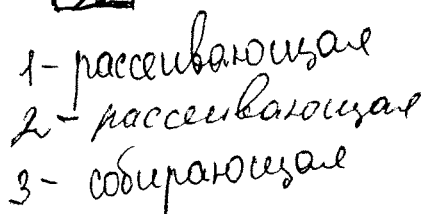 1 - рассеивающая
2 - рассеивающая
3 - собирающая